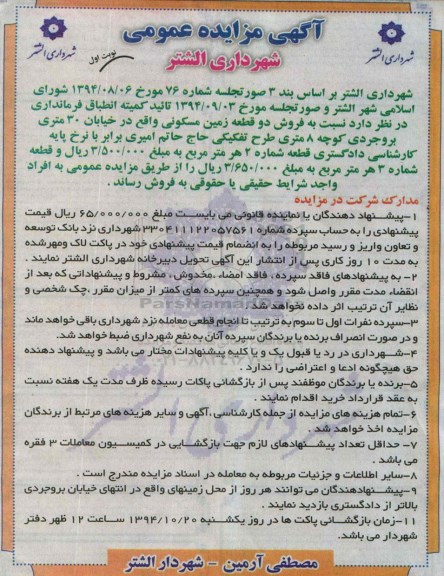 آگهی مزایده عمومی
شهرداری الشتر
نوبت اول
شهرداری الشتر
شهرداری الشتر
شهرداری الشتر بر اساس بند ۳ صورتجلسه شماره ۷۶ مورخ ۱۳۹۴/۰۸/۰۶ شورای
اسلامی شهر الشتر و صورتجلسه مورخ ۱۳۹۴/۰۹/۰۳ تائید کمیته انطباق فرمانداری
در نظر دارد نسبت به فروش دو قطعه زمین مسکونی واقع در خیابان ۳۰ متری
بروجردی کوچه ۸ متری طرح تفکیکی حاج حاتم امیری برابر با نرخ پایه
کارشناسی دادگستری قطعه شماره ۲ هر متر مربع به مبلغ ۳/۵۰۰/۰۰۰ ریال و قطعه
شماره ۳ هر متر مربع به مبلغ ۳/۶۵۰/۰۰۰ ریال را از طریق مزایده عمومی به افراد
واجد شرایط حقیقی یا حقوقی به فروش رساند .
مدارک شرکت در مزایده
۱-پیشنهاد دهندگان یا نماینده قانونی می بایست مبلغ ۶۵/۰۰۰/۰۰۰ ریال قیمت
پیشنهادی را به حساب سپرده شماره ۳۳۰۴۱۱۱۲۲۰۵۷۵۶۱ شهرداری نزد بانک توسعه
و تعاون واریز و رسید مربوطه را به انضمام قیمت پیشنهادی خود در پاکت لاک ومهرشده
به مدت ۱۰ روز کاری پس از انتشار این آگهی تحویل دبیرخانه شهرداری الشتر نمایند .
۲- به پیشنهادهای فاقد سپرده ، فاقد امضاء ،مخدوش ، مشروط و پیشنهاداتی که بعد از
انقضاء مدت مقرر واصل شود و همچنین سپرده های کمتر از میزان مقرر ،چک شخصی و
نظایر آن ترتیب اثر داده نخواهد شد.
۳-سپرده نفرات اول تا سوم به ترتیب تا انجام قطعی معامله نزد شهرداری باقی خواهد ماند
و در صورت انصراف برنده یا برندگان سپرده آنان به نفع شهرداری ضبط خواهد شد.
۴-شهرداری در رد یا قبول یک و یا کلیه پیشنهادات مختار می باشد و پیشنهاد دهنده
حق هیچگونه ادعا و اعتراضی را ندارد .
۵-برنده یا برندگان موظفند پس از بازگشائی پاکات رسیده ظرف مدت یک هفته نسبت
به عقد قرارداد خرید اقدام نمایند .
۶-تمام هزینه های مزایده از جمله کارشناسی ،آگهی و سایر هزینه های مرتبط از برندگان
مزایده اخذ خواهد شد .
۷- حداقل تعداد پیشنهادهای لازم جهت بازگشایی در کمیسیون معاملات ۳ فقره
می باشد .
۸-سایر اطلاعات و جزئیات مربوطه به معامله در اسناد مزایده مندرج است .
۹-پیشنهاددهندگان می توانند هر روز از محل زمینهای واقع در انتهای خیابان بروجردی
بالاتر از دادگستری بازدید نمایند .
۱۱-زمان بازگشائی پاکت ها در روز یکشنبه ۱۳۹۴/۱۰/۲۰ ساعت ۱۲ ظهر دفتر
شهردار می باشد.
مصطفی آرمین - شهردار الشتر